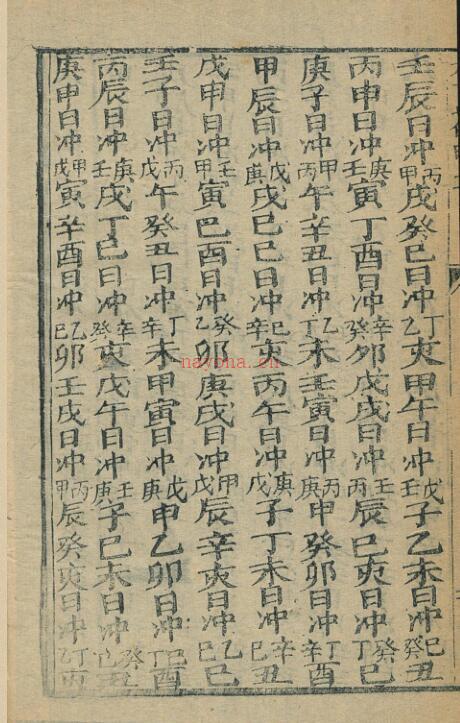 壬辰日冲丙甲戌癸巳日冲丁乙亥甲午日冲戊壬子乙未日冲己癸丑
丙申日冲庚壬寅丁酉日冲辛癸夘戊戌日冲壬丙辰巳亥日冲癸丁巳
庚子日冲甲丙午辛丑日冲乙丁未壬寅日冲丙庚申癸卯日冲丁辛酉
甲辰日冲戊庚戌巳巳日冲巳辛亥丙午日冲庚戊子丁未日冲辛巳丑
戊申日冲壬甲寅巳酉日冲癸乙卯庚戌日冲甲戊辰辛亥日冲乙巳巳
壬子日冲丙戊午癸丑日冲丁辛未甲寅日冲戊庚申乙卯日冲巳丁酉
丙辰日冲庚壬戌丁巳日冲辛癸亥戊午日冲壬庚子巳未日冲癸丑
庚申日冲甲戊寅辛酉日冲乙巳卯壬戌日冲丙甲辰癸亥日冲丁乙
nayona.cn